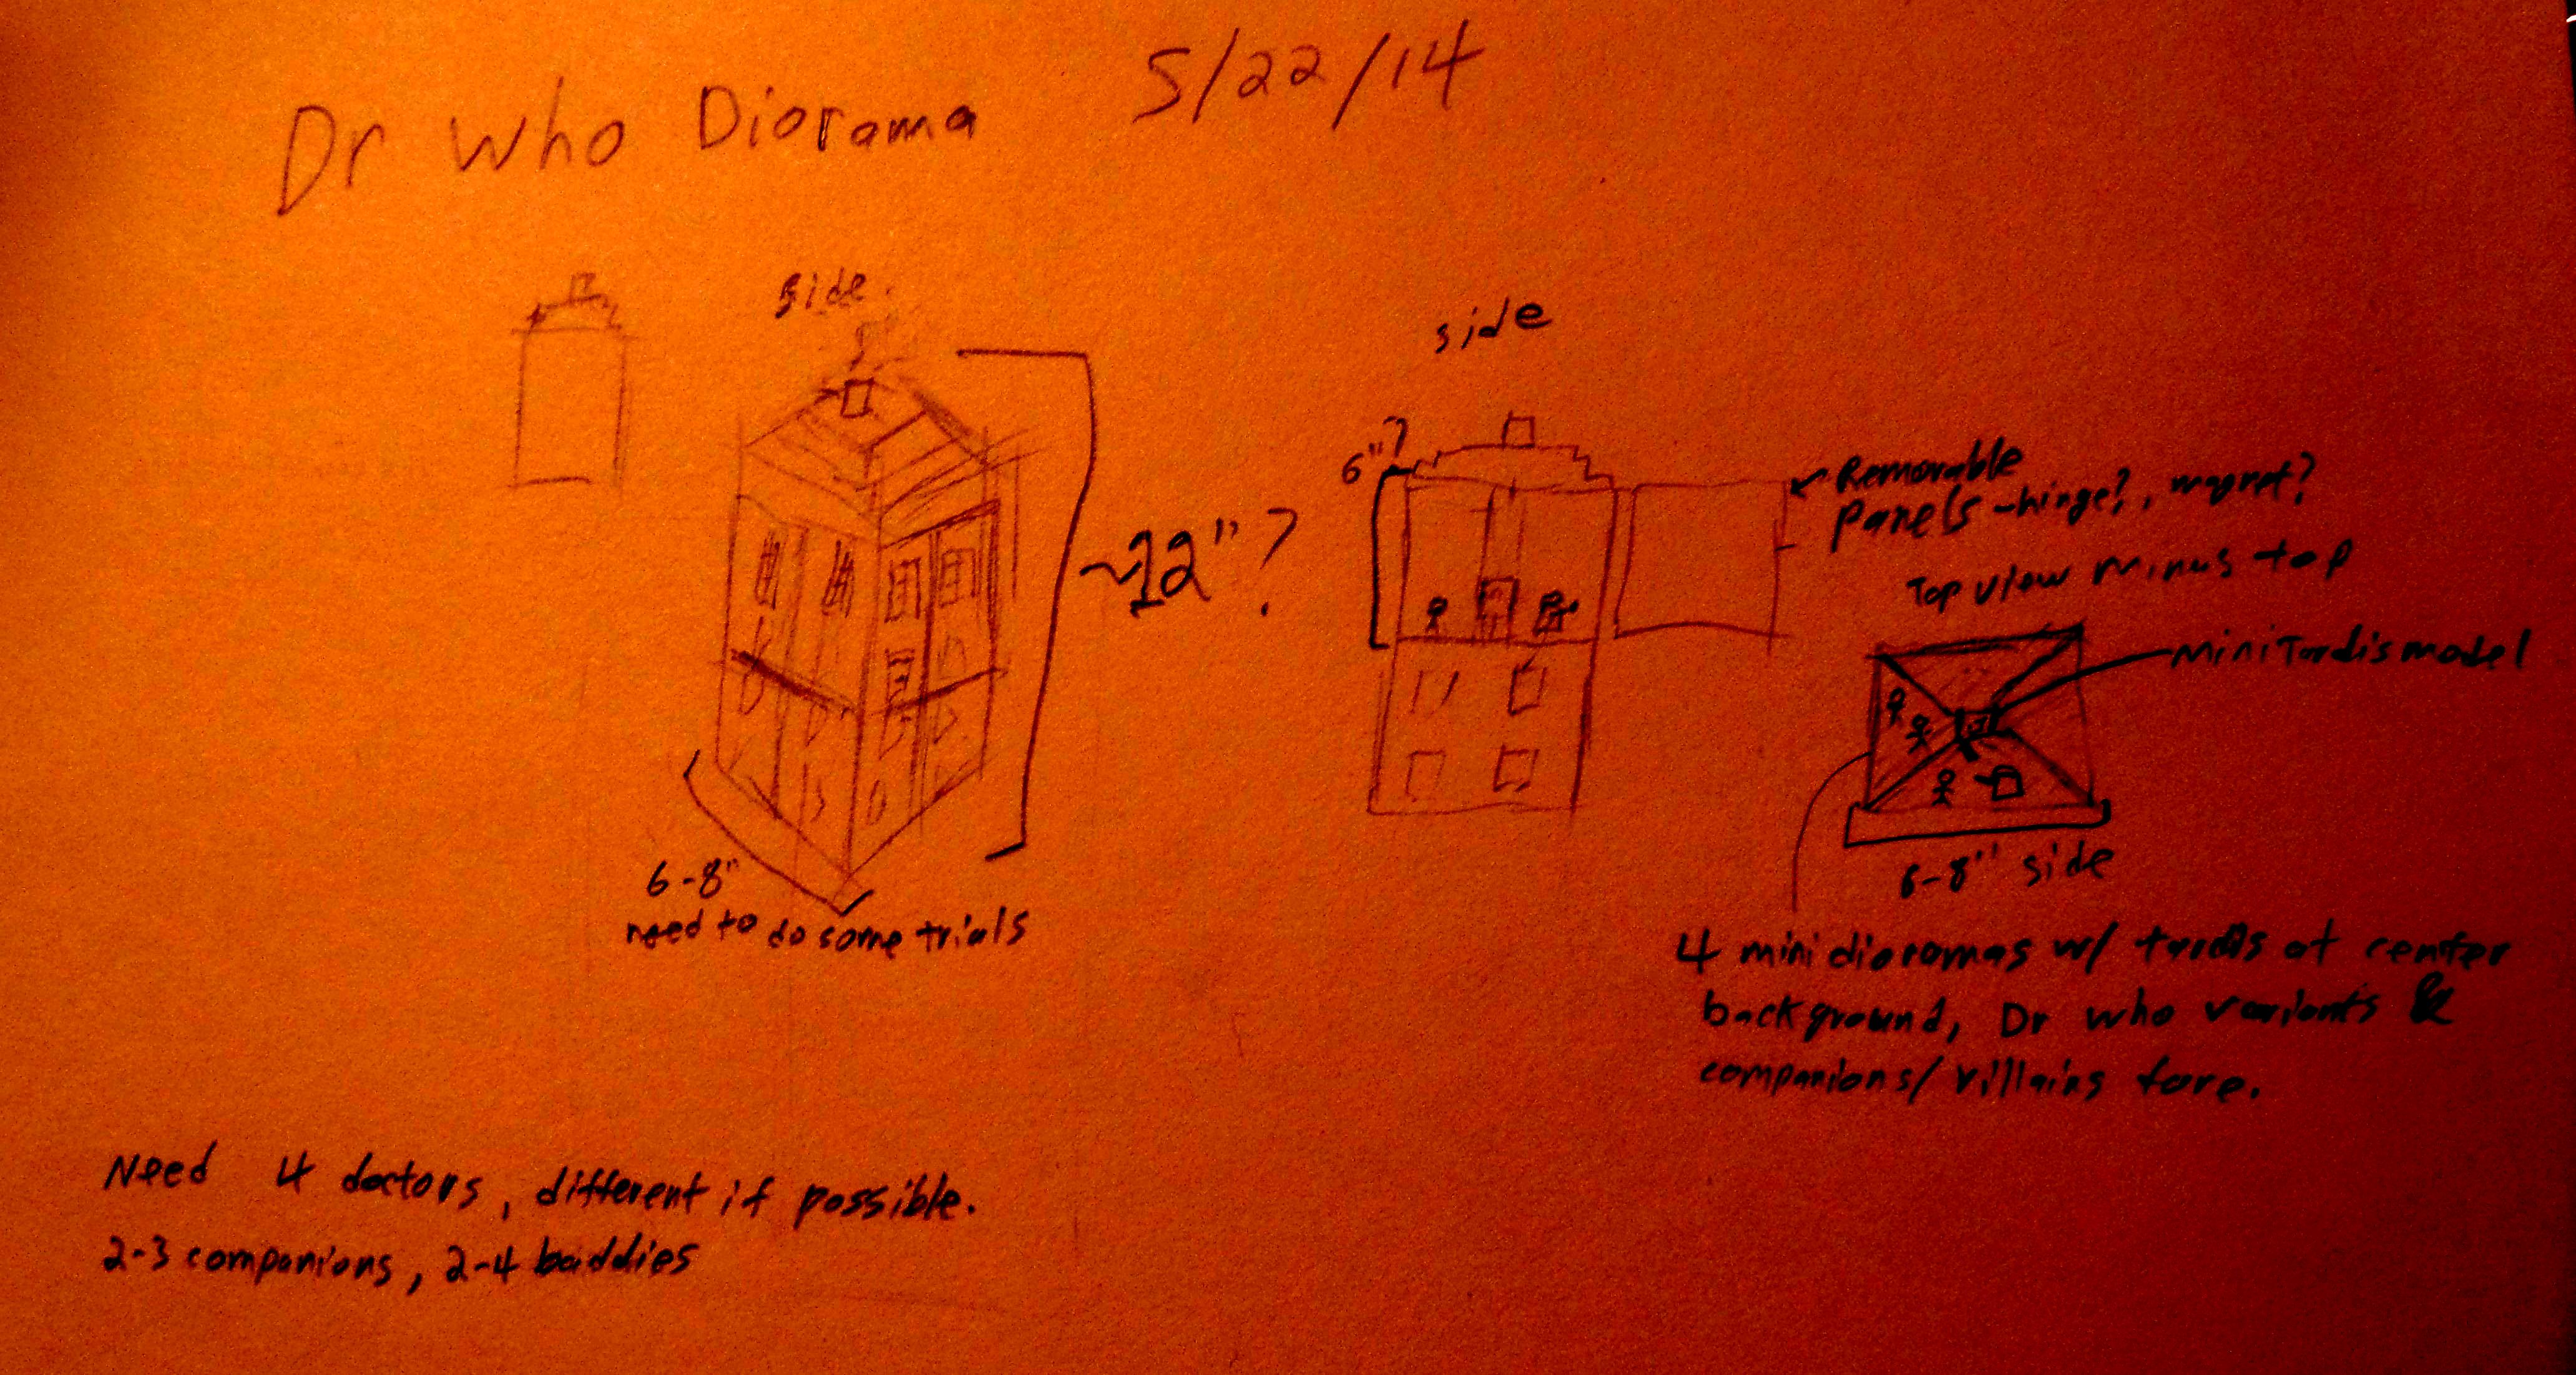 Dr Who Diorama 5/22/14
side.
side
~12"?
6"?
Removable
panels -hinge?, magnet?
Top view minus top
mini Tardis model
6-8"
need to do some trials
6-8" side
4 mini dioramas w/ tardis at center
background, Dr who variants &
companions/villains fore.
Need 4 doctors, different if possible.
2-3 companions, 2-4 baddies